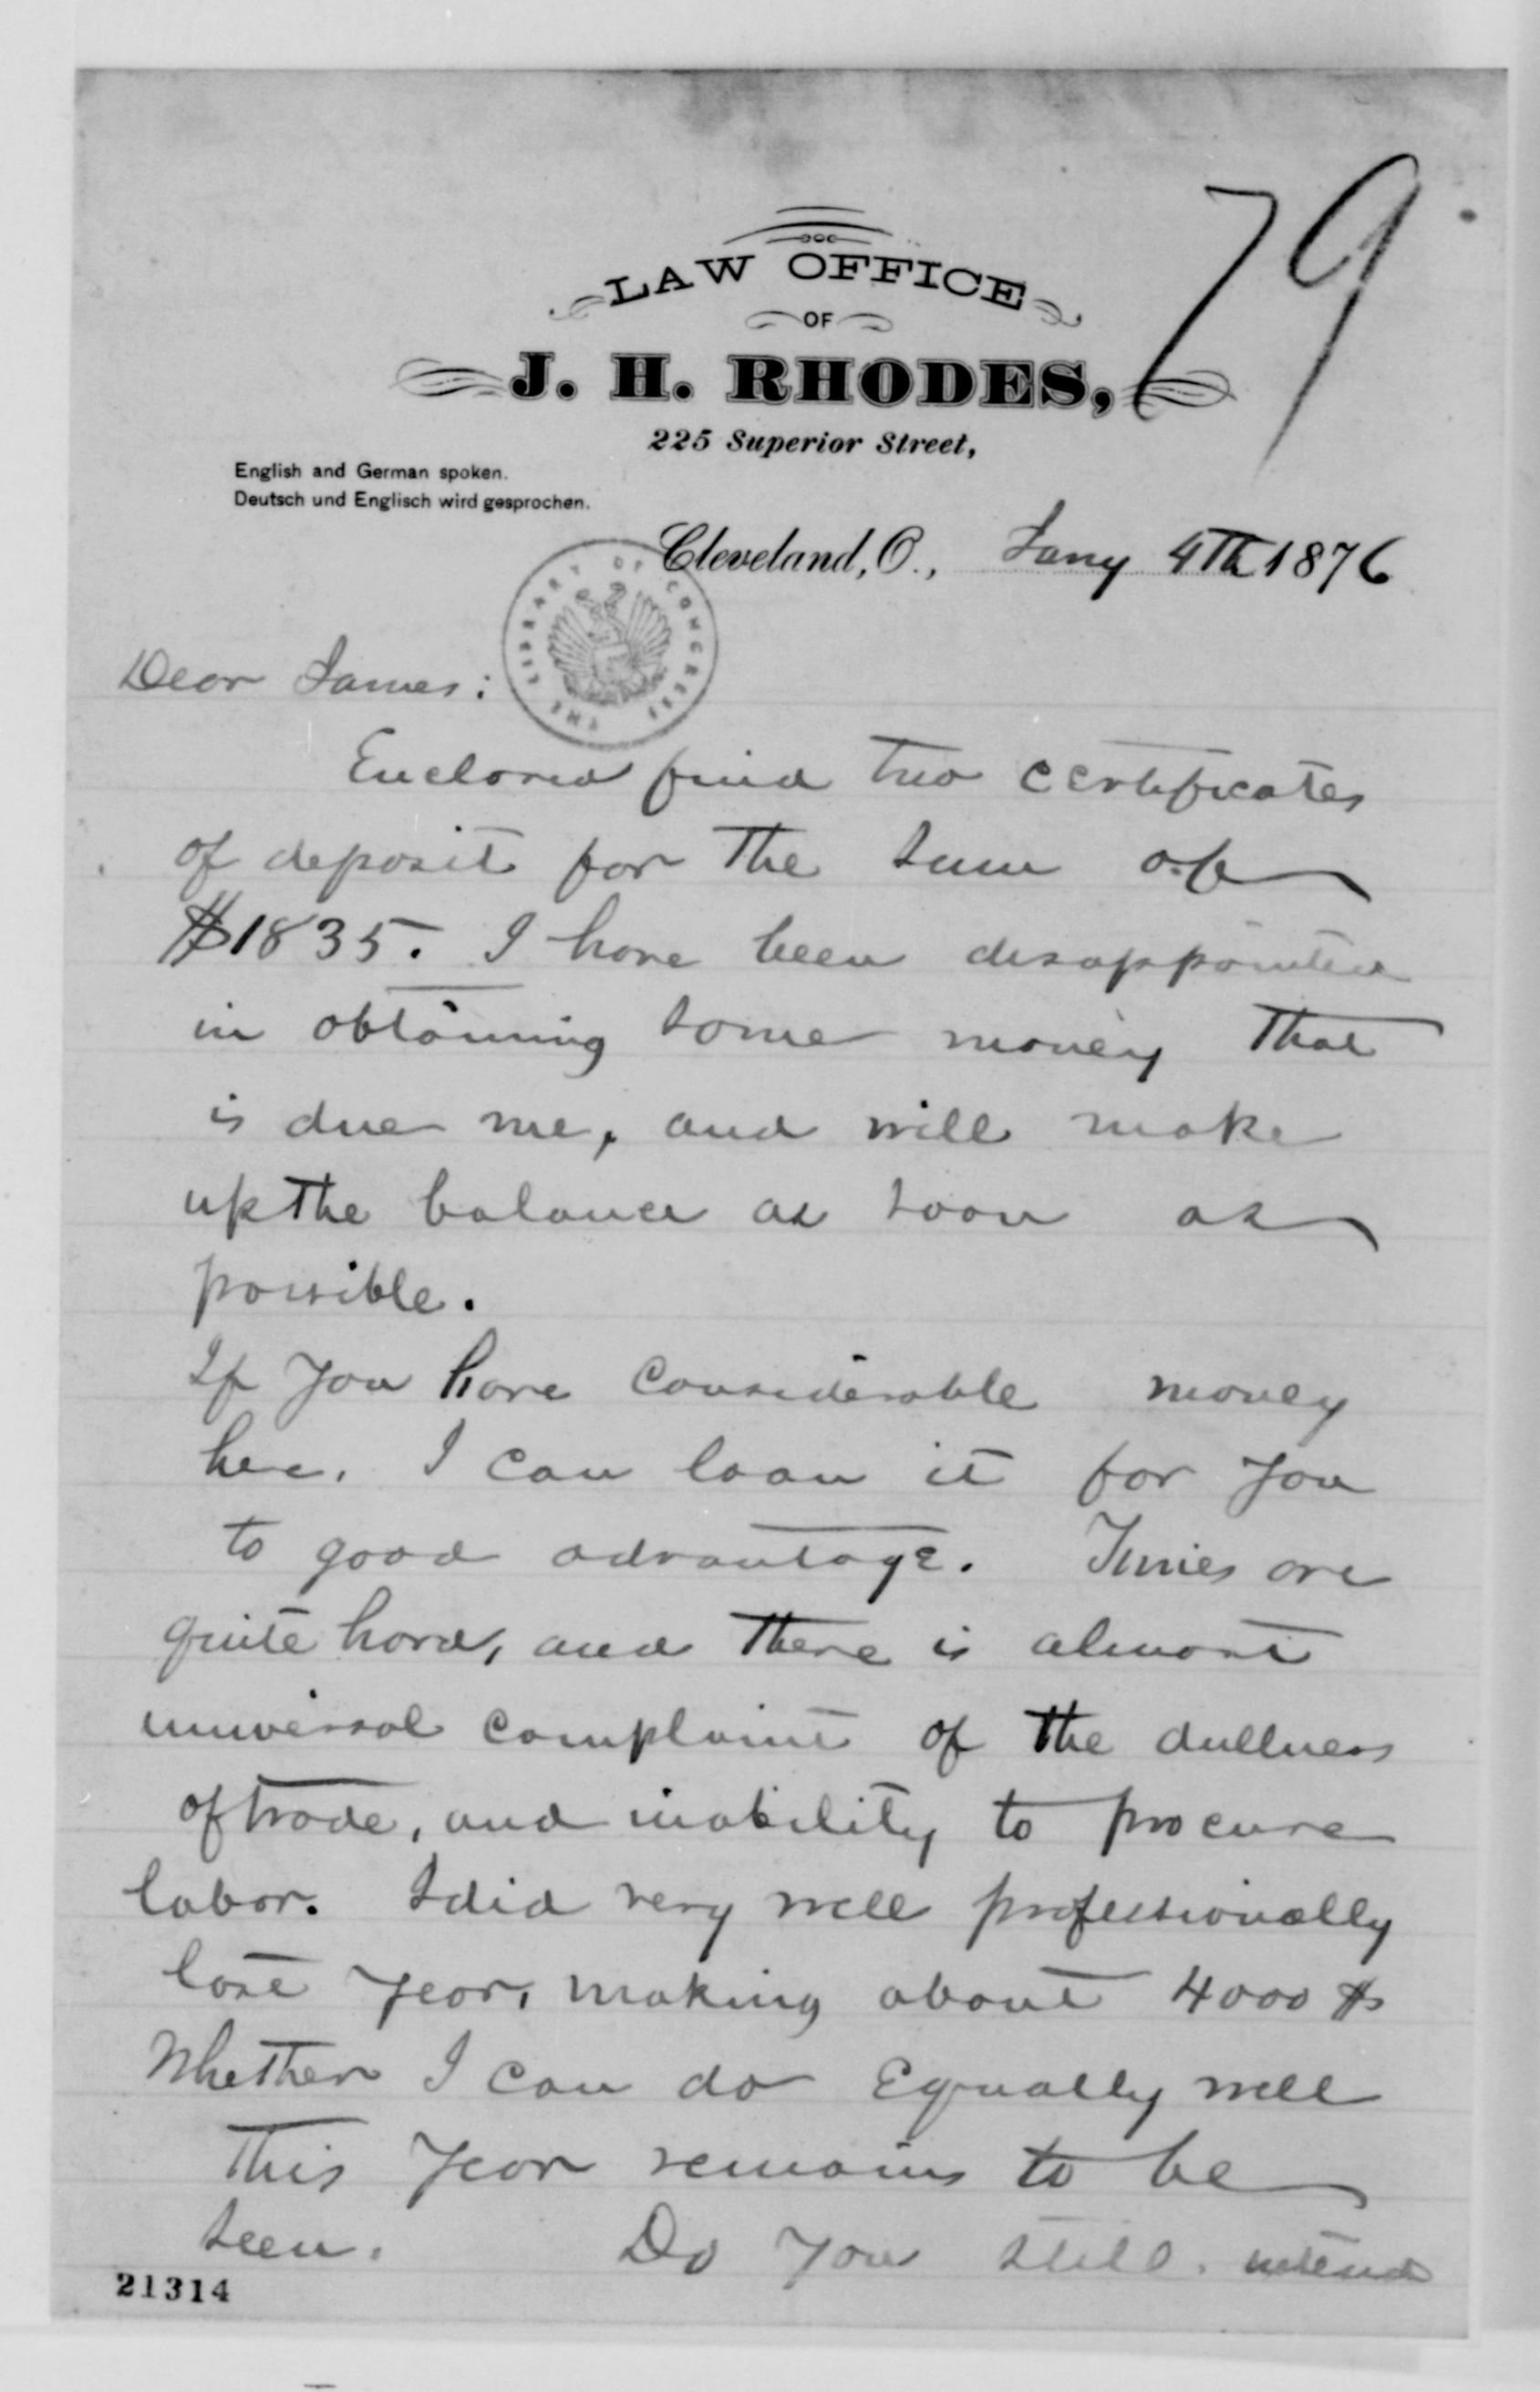 79
LAW OFFICE
OF
J. H. RHODES,
225 Superior Street,
English and German spoken.
Deutsch und Englisch wird gesprochen.
Cleveland, O., Jany 4Th 1876
THE LIBRARY OF CONGRESS
Dear James:
Enclosed find two certificates
of deposit for The sum of
$1835. I have been disappointed
in obtaining some money That
is due me, and will make
up The balance as soon as
possible.
If you have considerable money
here. I can loan it for you
to good advantage. Times are
quite hard, and There is almost
universal complaint of the dullness
of trade, and inability to procure
labor. I did very well professionally
last year, making about 4000 $
Whether I can do Equally well
This year remains to be
seen. Do you still intend
21314